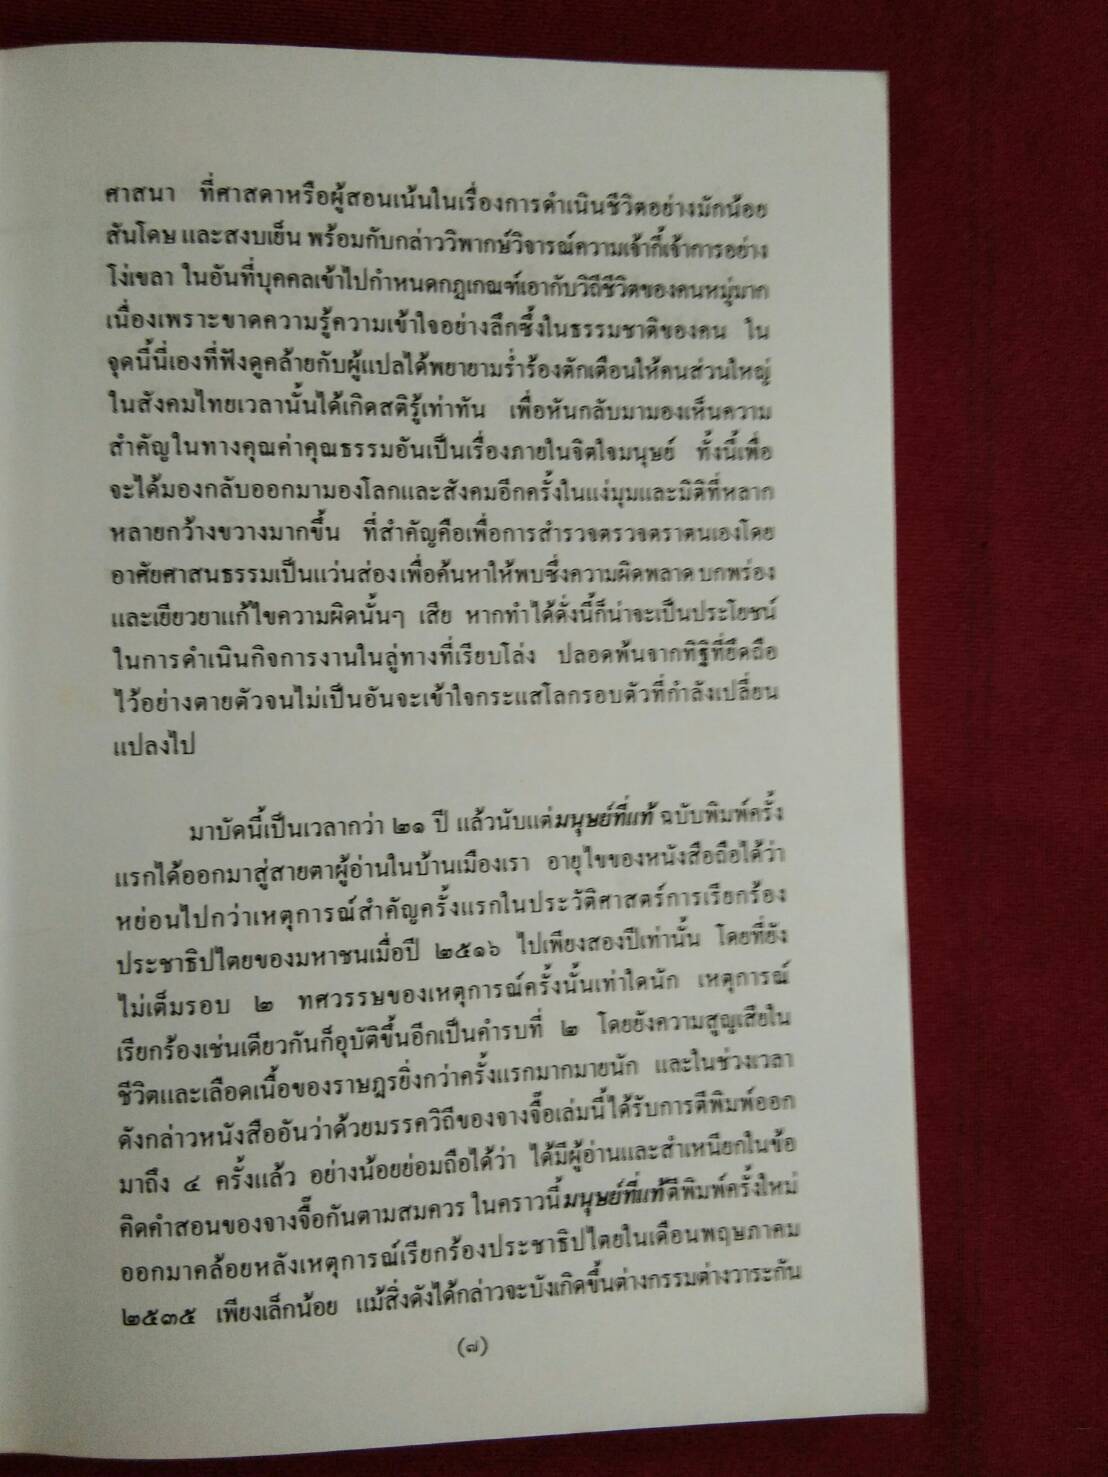 ศาสนา ที่ศาสดาหรือผู้สอนเน้นในเรื่องการดำเนินชีวิตอย่างมักน้อย
สันโดษ และสงบเย็น พร้อมกับกล่าววิพากษ์วิจารณ์ความเจ้ากี้เจ้าการอย่าง
โง่เขลา ในอันที่บุคคลเข้าไปกำหนดกฎเกณฑ์เอากับวิถีชีวิตของคนหมู่มาก
เนื่องเพราะขาดความรู้ความเข้าใจอย่างลึกซึ้งในธรรมชาติของคน ใน
จุดนี้นี่เองที่ฟังดูคล้ายกับผู้แปลได้พยายามร่ำร้องตักเตือนให้คนส่วนใหญ่
ในสังคมไทยเวลานั้นได้เกิดสติรู้เท่าทัน เพื่อหันกลับมามองเห็นความ
สำคัญในทางคุณค่าคุณธรรมอันเป็นเรื่องภายในจิตใจมนุษย์ ทั้งนี้เพื่อ
จะได้มองกลับออกมามองโลกและสังคมอีกครั้งในแง่มุมและมิติที่หลาก
หลายกว้างขวางมากขึ้น ที่สำคัญคือเพื่อการสำรวจตรวจตราตนเองโดย
อาศัยศาสนธรรมเป็นแว่นส่อง เพื่อค้นหาให้พบซึ่งความผิดพลาด บกพร่อง
และเยียวยาแก้ไขความผิดนั้นๆ เสีย หากทำได้ดั่งนี้ก็น่าจะเป็นประโยชน์
ในการดำเนินกิจการงานในลู่ทางที่เรียบโล่ง ปลอดพ้นจากทิฐิที่ยึดถือ
ไว้อย่างตายตัวจนไม่เป็นอันจะเข้าใจกระแสโลกรอบตัวที่กำลังเปลี่ยน
แปลงไป
มาบัดนี้เป็นเวลากว่า ๒๑ ปี แล้วนับแต่มนุษย์ที่แท้ ฉบับพิมพ์ครั้ง
แรกได้ออกมาสู่สายตาผู้อ่านในบ้านเมืองเรา อายุไขของหนังสือถือได้ว่า
หย่อนไปกว่าเหตุการณ์สำคัญครั้งแรกในประวัติศาสตร์การเรียกร้อง
ประชาธิปไตยของมหาชนเมื่อปี ๒๕๑๖ ไปเพียงสองปีเท่านั้น โดยที่ยัง
ไม่เต็มรอบ ๒ ทศวรรษของเหตุการณ์ครั้งนั้นเท่าใดนัก เหตุการณ์
เรียกร้องเช่นเดียวกันก็อุบัติขึ้นอีกเป็นคำรบที่ ๒ โดยยังความสูญเสียใน
ชีวิตและเลือดเนื้อของราษฎรยิ่งกว่าครั้งแรกมากมายนัก และในช่วงเวลา
ดังกล่าวหนังสืออันว่าด้วยมรรควิถีของจางจื๊อเล่มนี้ได้รับการตีพิมพ์ออก
มาถึง ๔ ครั้งแล้ว อย่างน้อยย่อมถือได้ว่า ได้มีผู้อ่านและสำเหนียกในข้อ
คิดคำสอนของจางจื๊อกันตามสมควร ในคราวนี้มนุษย์ที่แท้ตีพิมพ์ครั้งใหม่
ออกมาคล้อยหลังเหตุการณ์เรียกร้องประชาธิปไตยในเดือนพฤษภาคม
๒๕๓๕ เพียงเล็กน้อย แม้สิ่งดังได้กล่าวจะบังเกิดขึ้นต่างกรรมต่างวาระกัน
(๗)